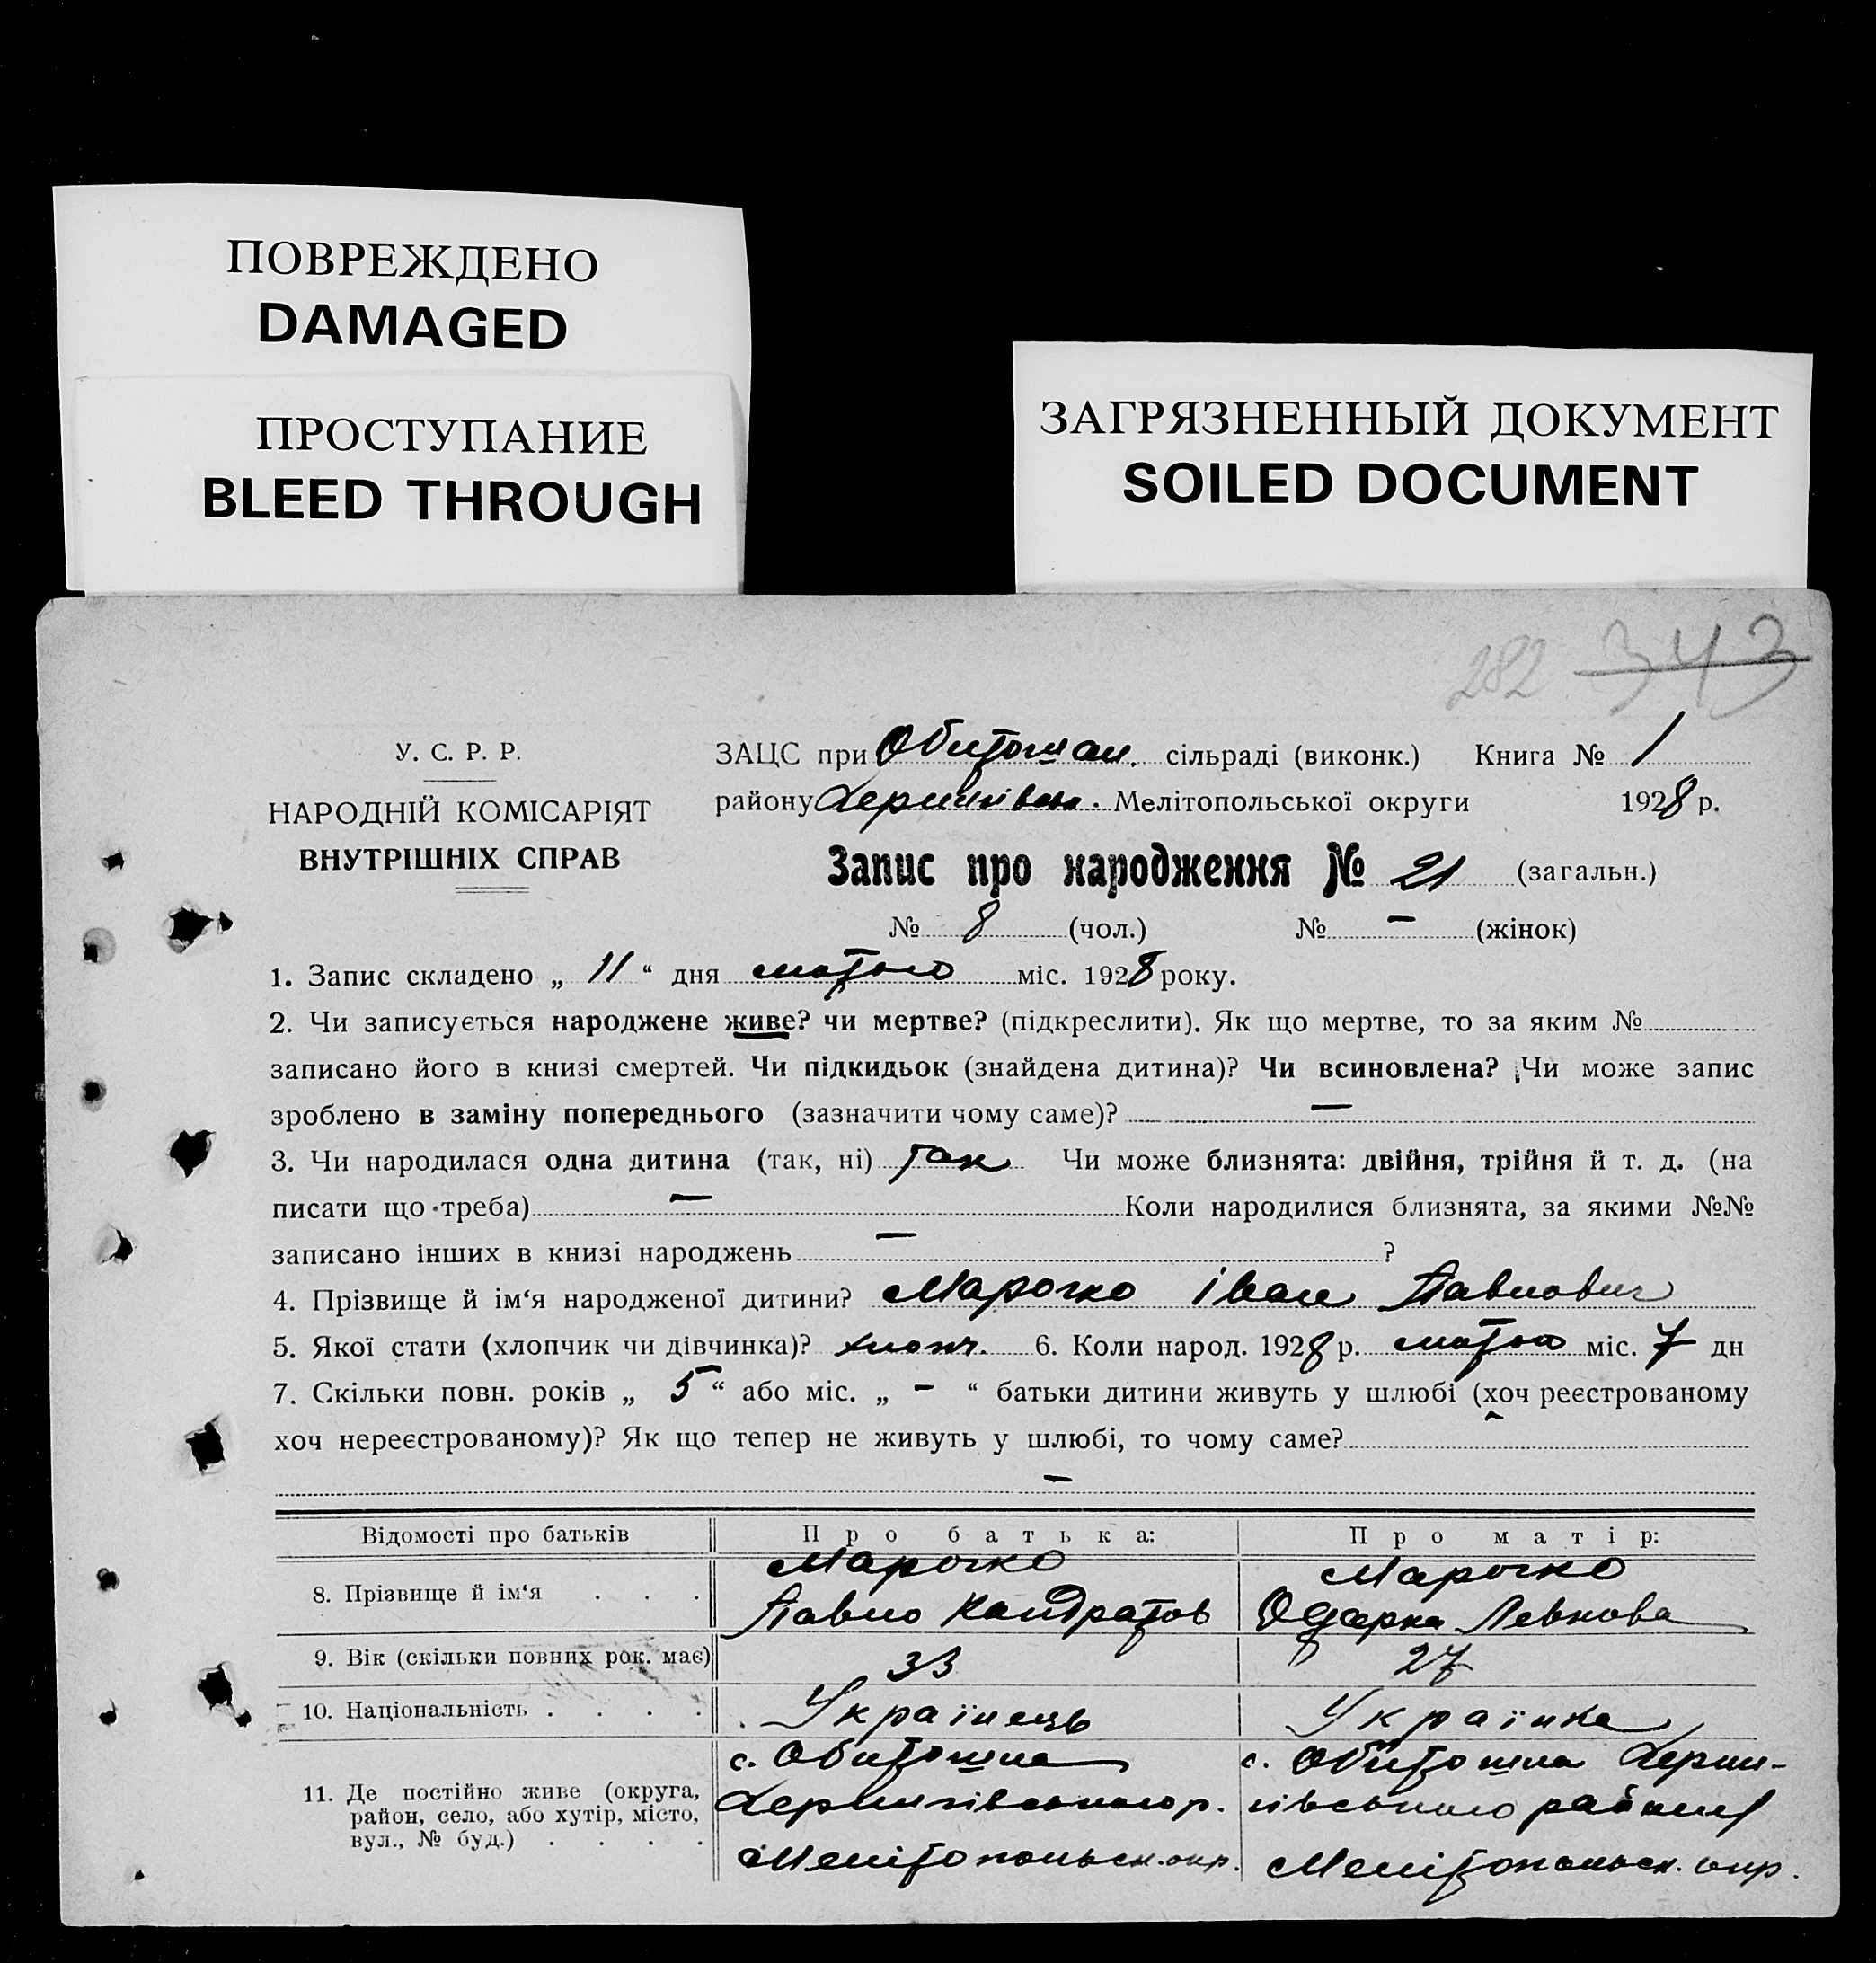 ПОВРЕЖДЕНО
DAMAGED
ПРОСТУПАНИЕ
BLEED THROUGH
ЗАГРЯЗНЕННЫЙ ДОКУМЕНТ
SOILED DOCUMENT
282 343
У. С. Р. Р.
НАРОДНІЙ КОМІСАРІЯТ
ВНУТРІШНІХ СПРАВ
ЗАЦС при Обиточан. сільраді (виконк.) Книга № 1
району Мелітопольської округи 1928 р.
Запис про народження № 21 (загальн.)
№ 8 (чол.) № — (жінок)
1. Запис складено „ 11 “ дня лютого міс. 1928 року.
2. Чи записується народжене живе? чи мертве? (підкреслити). Як що мертве, то за яким №
записано його в книзі смертей. Чи підкидьок (знайдена дитина)? Чи всиновлена? Чи може запис
зроблено в заміну попереднього (зазначити чому саме)? —
3. Чи народилася одна дитина (так, ні) так Чи може близнята: двійня, трійня й т. д. (на
писати що треба) — Коли народилися близнята, за якими №№
записано інших в книзі народжень — ?
4. Прізвище й ім‘я народженої дитини? Марочко Іван Павлович
5. Якої стати (хлопчик чи дівчинка)? хлопч. 6. Коли народ. 1928 р. лютого міс. 7 дн
7. Скільки повн. років „ 5 “ або міс. „ — “ батьки дитини живуть у шлюбі (хоч реєстрованому
хоч нереєстрованому)? Як що тепер не живуть у шлюбі, то чому саме?
—
Відомості про батьків Про батька: Про матір:
8. Прізвище й ім‘я . . . Марочко Павло Кандратов Марочко Одарка Левкова
9. Вік (скільки повних рок. має) 33 27
10. Національність . . . . Українець Українка
11. Де постійно живе (округа, район, село, або хутір, місто, вул., № буд.) . . . .
с. Обиточна
р.
Мелітопольск. окр.
с. Обиточна
району
Мелітопольск. окр.